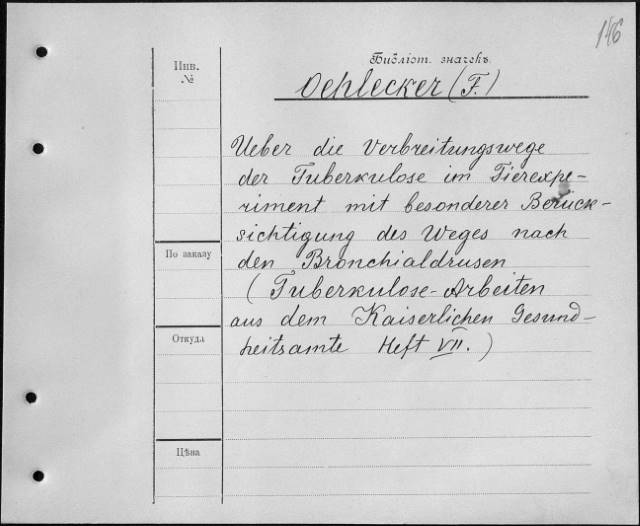 146
Библіот. значекъ.
Инв.
№
Oehlecker (F.)
Ueber die Verbreitungswege
der Tuberkulose im Tierexpe-
riment mit besonderer Berück-
sichtigung des Weges nach
По заказу
den Bronchialdrusen
(Tuberkulose-Arbeiten
aus dem Kaiserlichen Gesund-
Откуда
heitsamte Heft VII.)
Цѣна